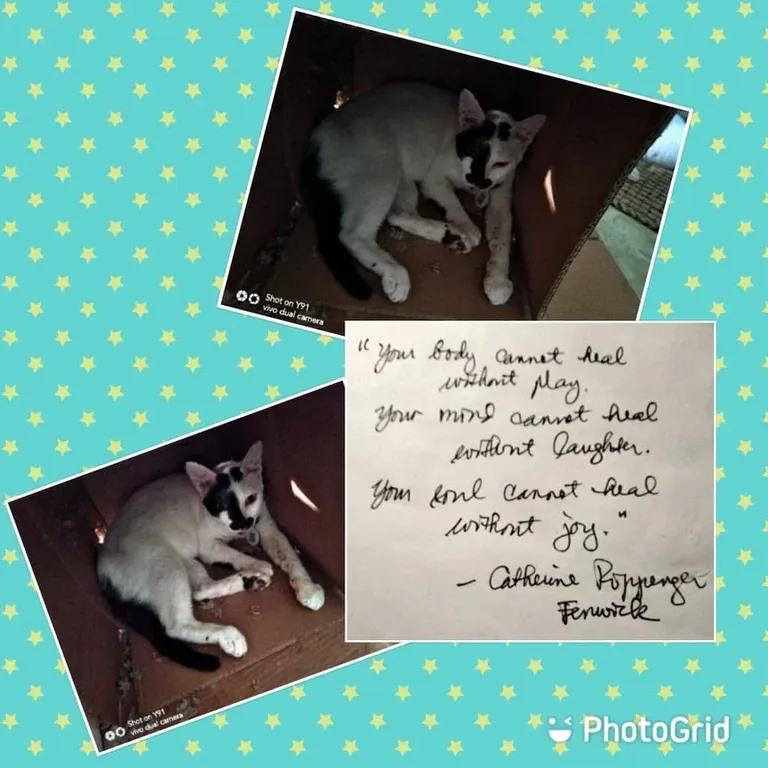 Shot on Y91
vivo dual camera
"Your body cannot heal
without play.
Your mind cannot heal
without laughter.
Your soul cannot heal
without joy."
- Catherine Rippenger
Fenwick
Shot on Y91
vivo dual camera
PhotoGrid